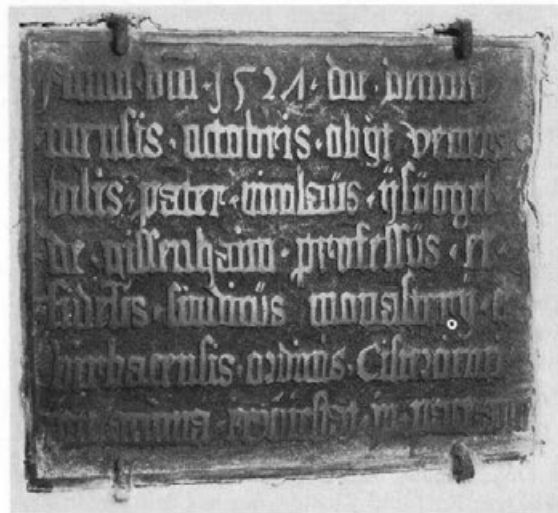 Anno · dni · 1521 · die · prima
mensis · octobris · obyt venera
bilis · pater · nicolaus · ysuogel
de · gissenhaim · professus · et
fidelis · sindicus monastery · e
birbacensis · ordinis · Cistercien
anima requiescat in pace